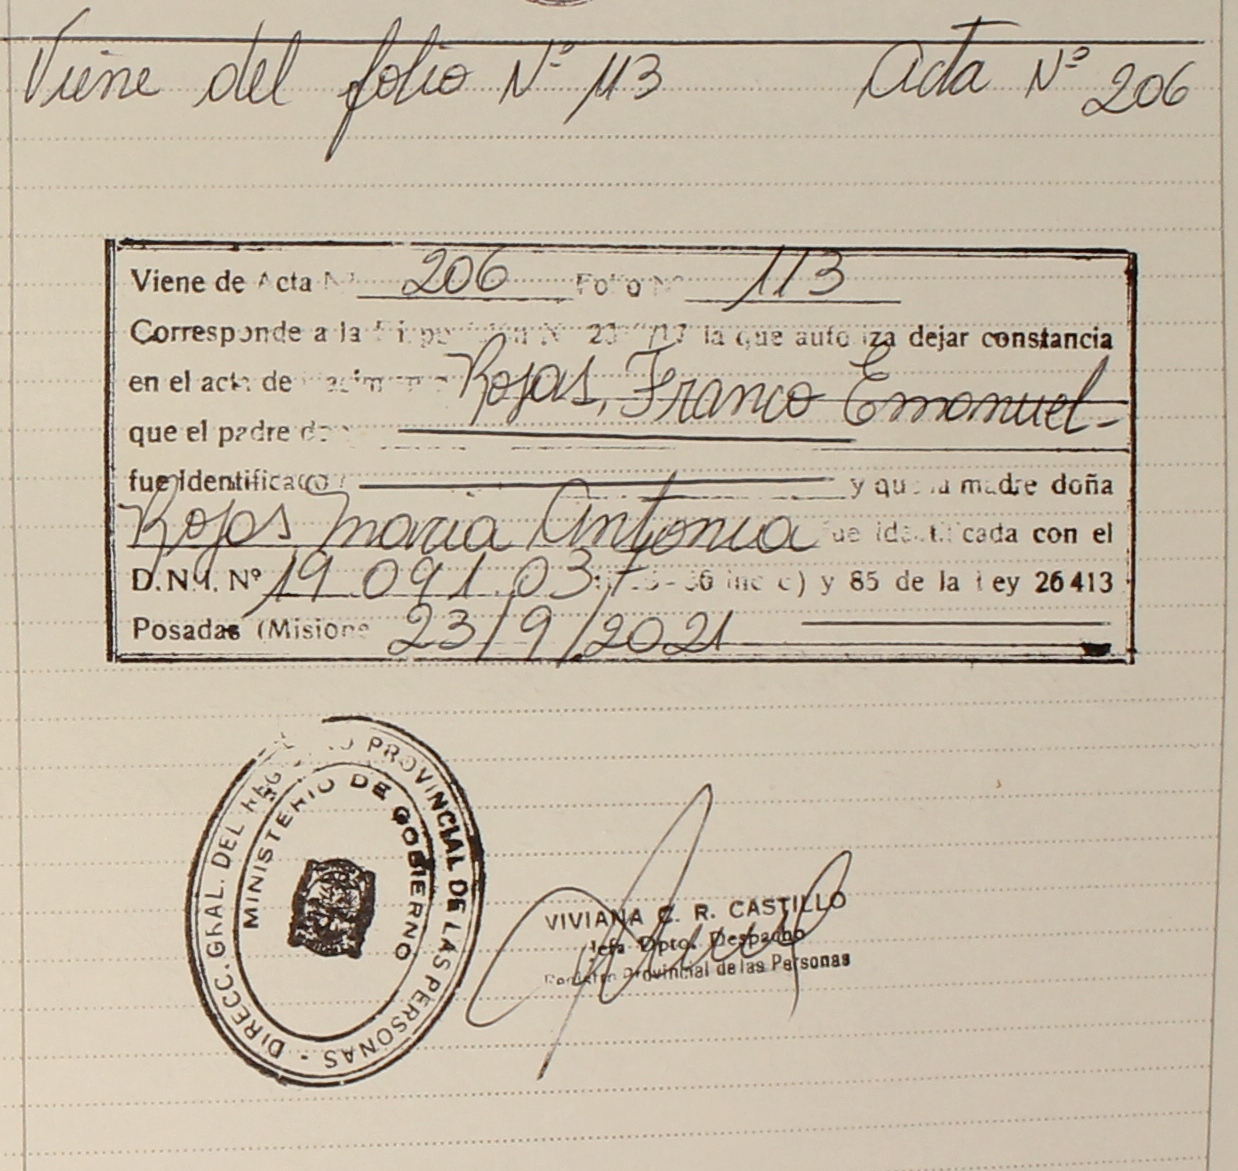 Viene del folio Nº 113 Acta Nº 206
Viene de Acta Nº 206 Folio Nº 113
Corresponde a la la que autoriza dejar constancia
en el acta de Rojas, Franco Emanuel-
que el padre
fue Identificado y que la madre doña
Rojas Maria Antonia fue identificada con el
D.N.I. Nº 19.091.037 inc c) y 85 de la Ley 26413
Posadas (Misiones 23/9/2021
DIRECC. GRAL. DEL REGISTRO PROVINCIAL DE LAS PERSONAS -
MINISTERIO DE GOBIERNO
VIVIANA C. R. CASTILLO
Jefa Dpto. Despacho
Registro Provincial de las Personas